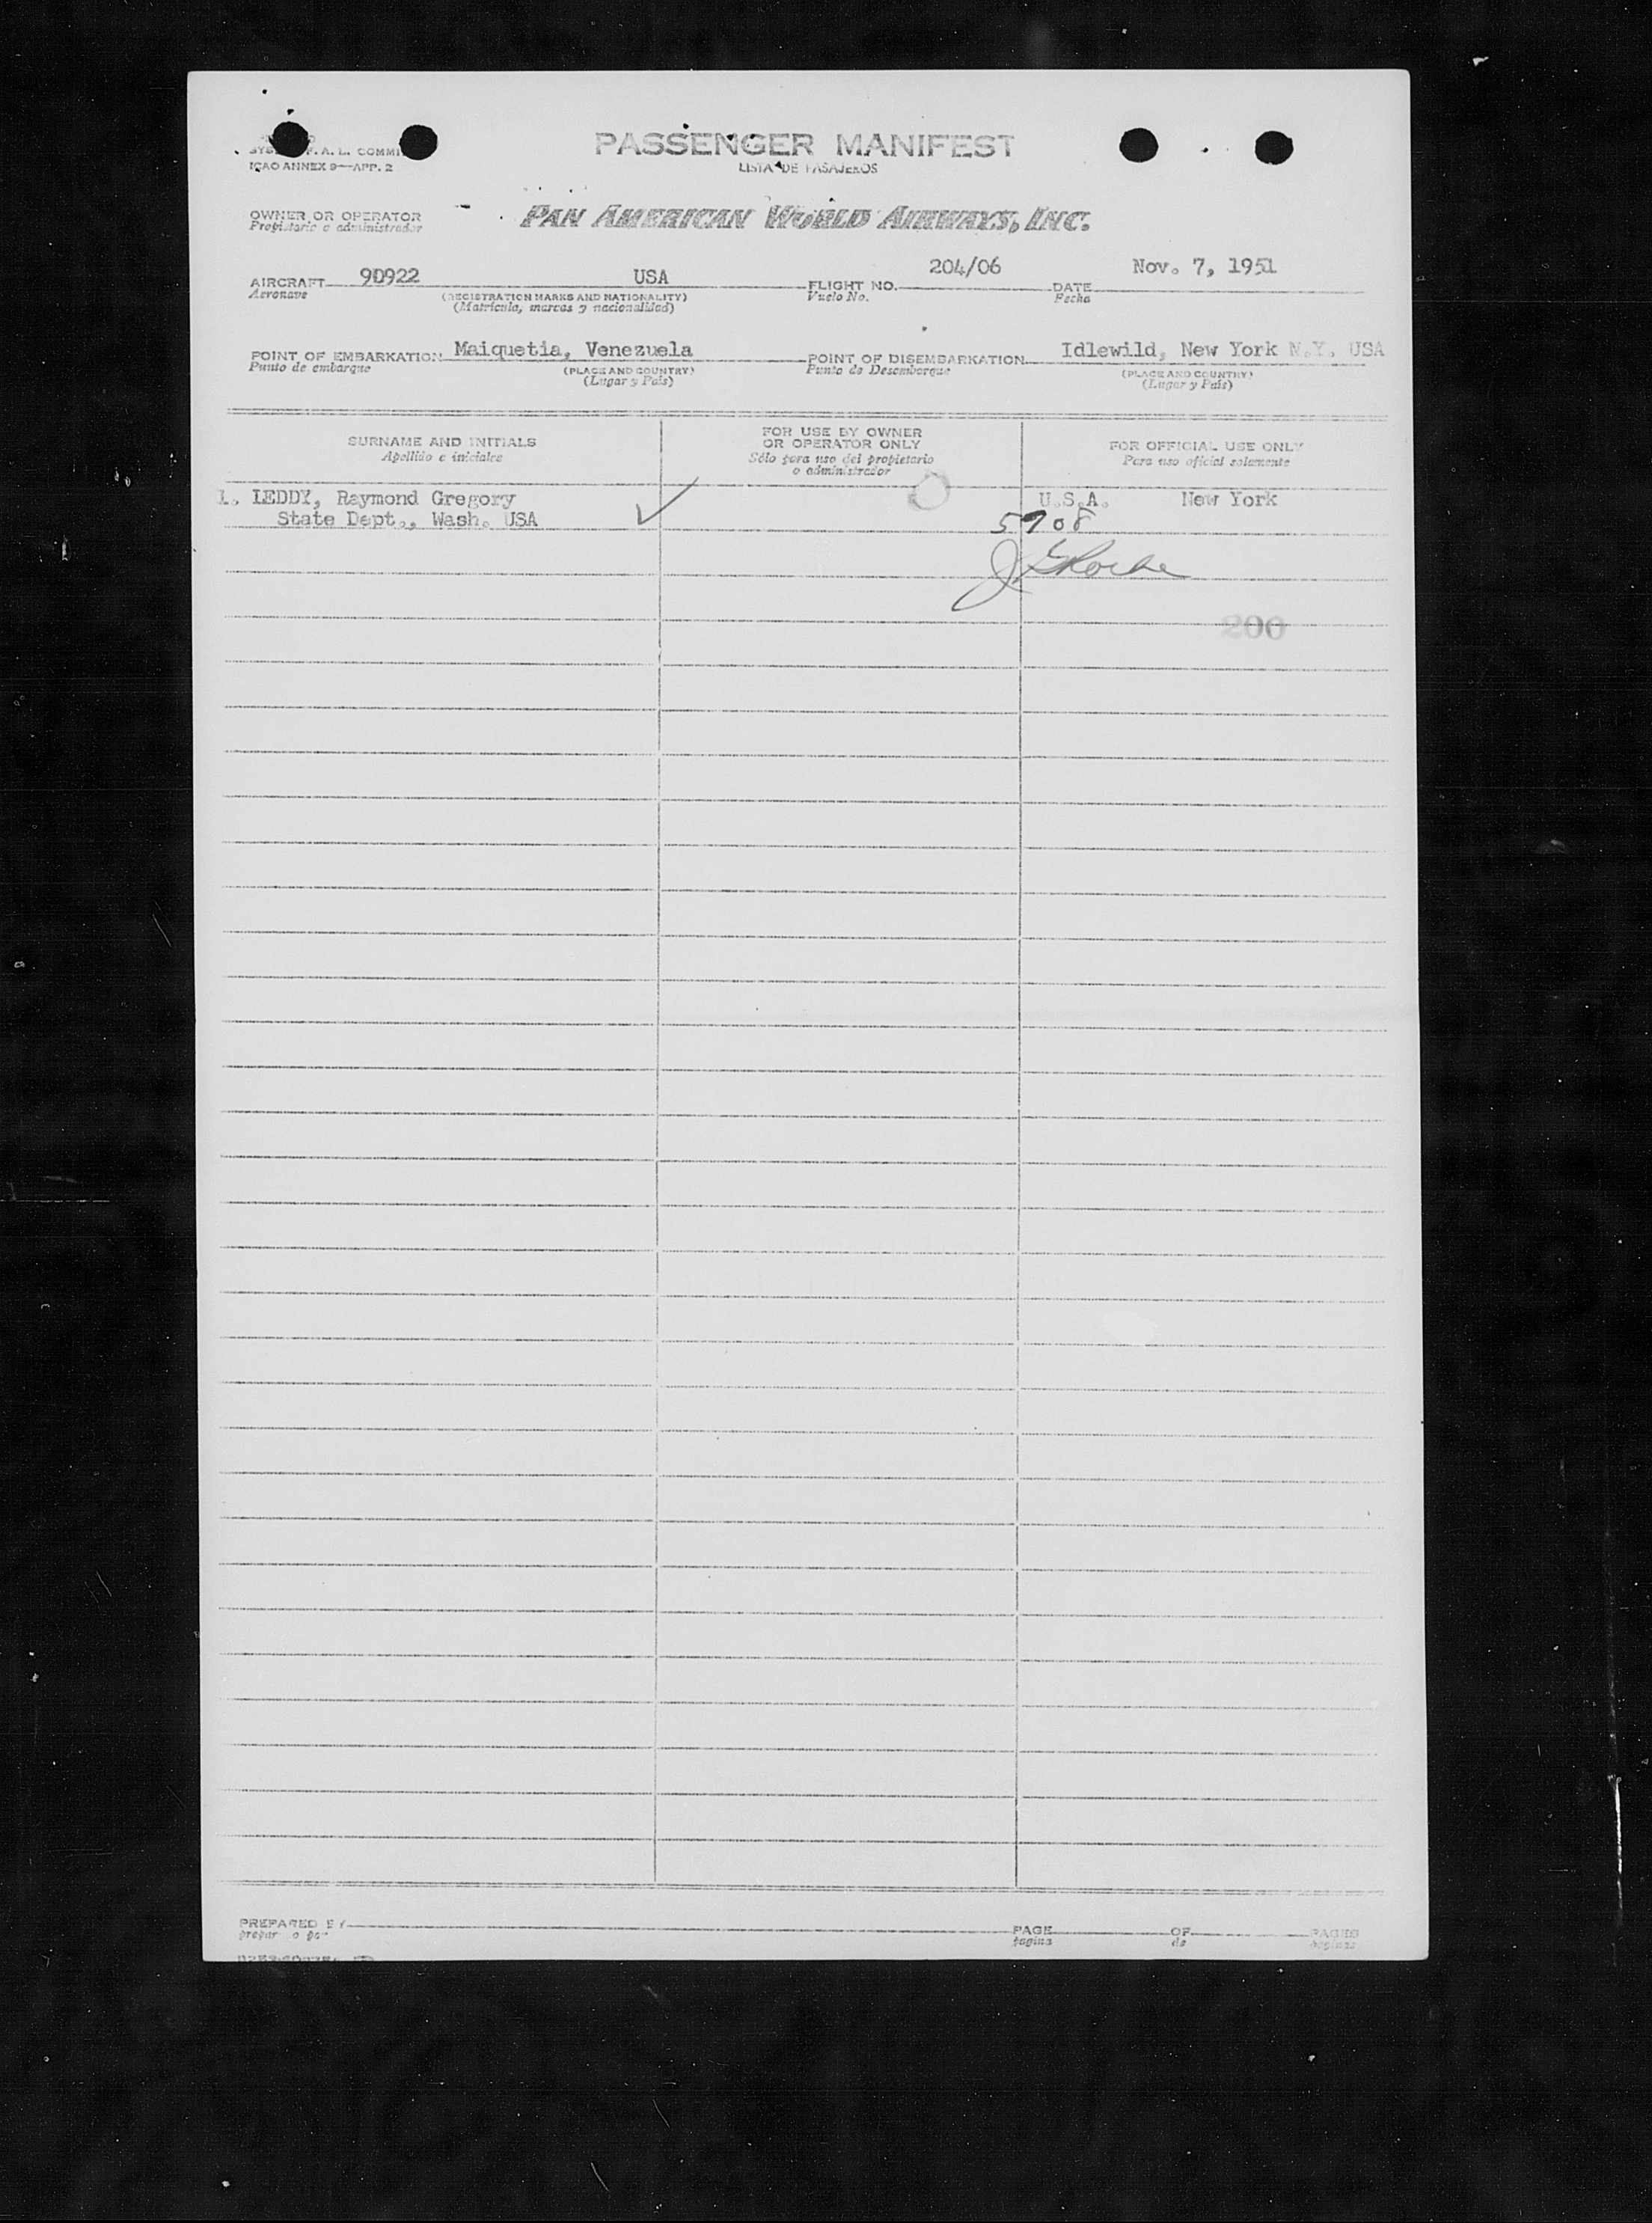 PASSENGER MANIFEST
LISTA DE PASAJEROS
F. A. L. COMMI
ICAO ANNEX 9—APP. 2
OWNER OR OPERATOR
Propietario o administrador
PAN AMERICAN WORLD AIRWAYS, INC.
AIRCRAFT 9D922 USA FLIGHT NO. 204/06 DATE Nov. 7, 1951
Aeronave (REGISTRATION MARKS AND NATIONALITY) Vuelo No. Fecha
(Matricula, marcas y nacionalidad)
POINT OF EMBARKATION Maiquetia, Venezuela POINT OF DISEMBARKATION Idlewild, New York N.Y. USA
Punto de embarque (PLACE AND COUNTRY) Punto de Desembarque (PLACE AND COUNTRY)
(Lugar y Pais) (Lugar y Pais)
SURNAME AND INITIALS
Apellido e iniciales
FOR USE BY OWNER
OR OPERATOR ONLY
Sólo para uso del propietario
o administrador
FOR OFFICIAL USE ONLY
Para uso oficial solamente
1. LEDDY, Raymond Gregory U.S.A. New York
State Dept., Wash. USA 5908
200
PREPARED BY PAGE OF PAGES
prepar o por pagina de paginas